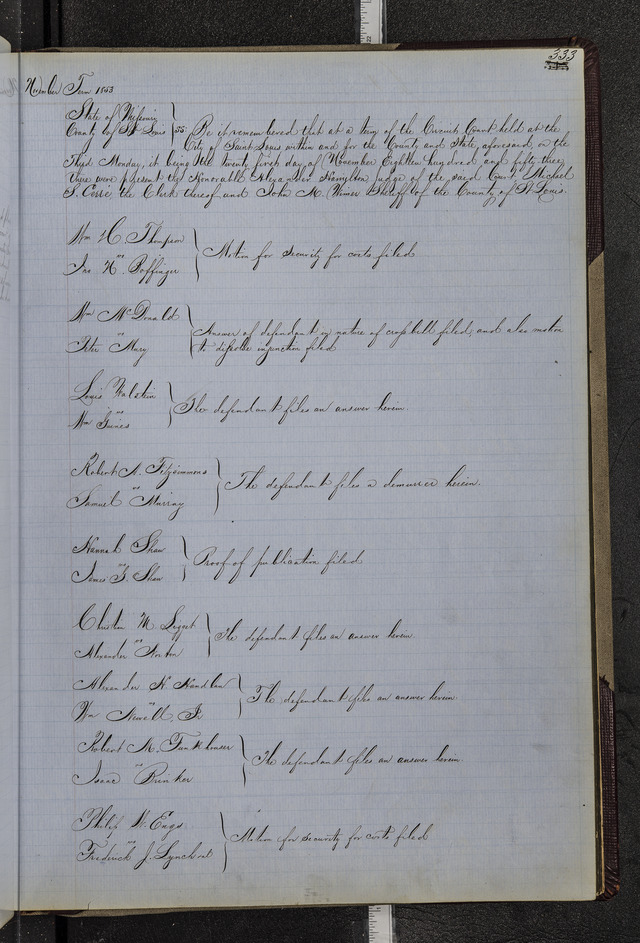 333
November Term 1853
State of Missouri
County of St Louis } ss. Be it remembered that at a term of the Circuit Court held at the
City of Saint Louis within and for the County and State, aforesaid, on the
Third Monday, it being the twenty first day of November Eighteen hundred and fifty three
there were present the Honorable Alexander Hamilton Judge of the said Court Michael
S. Cerré, the Clerk thereof and John M. Wimer Sheriff of the County of St Louis.
Wm H Thompson
vs } Motion for security for costs filed
Jno H. Poffinger
Wm McDonald
vs } Answer of defendant in nature of cross bill filed, and also motion
Peter Mary to dissolve injunction filed
Louis
vs } The defendant files an answer herein
Wm
Robert A. Fitzsimmons
vs } The defendant files a demurrer herein.
Samuel Murray
Hannah Shaw
vs } Proof of publication filed
James F. Shaw
M.
vs } The defendant files an answer herein
Alexander Norton
Alexander H Handlan
vs } The defendant files an answer herein
Wm Newell, Jr
Robert M. Funkhouser
vs } The defendant files an answer herein
Isaac Brinker
Philip W. Engs
vs } Motion for security for costs filed
Frederick J.